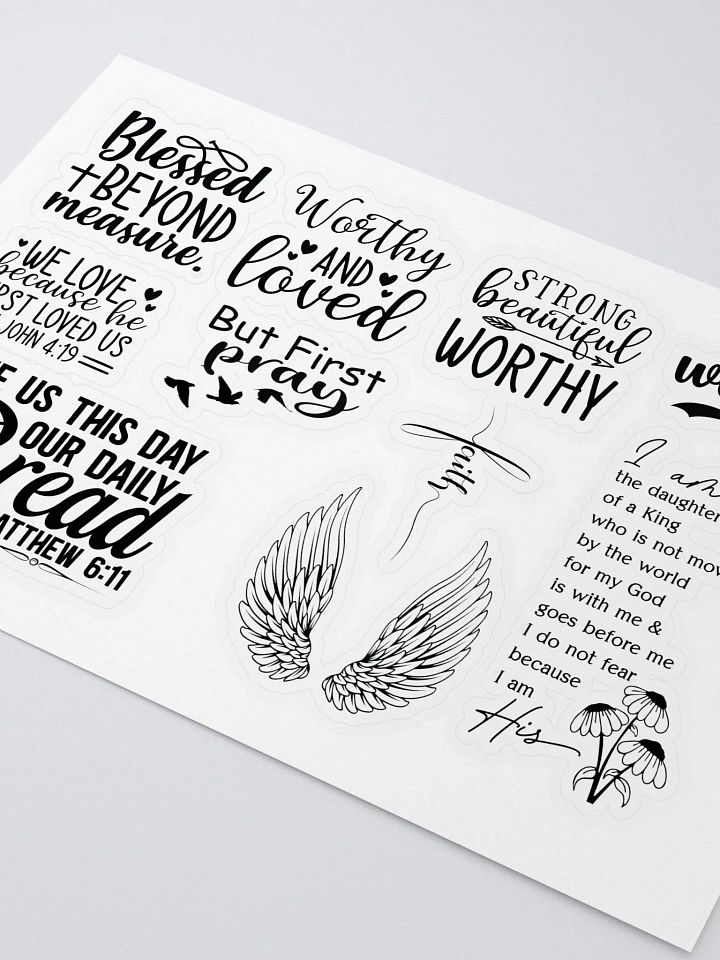 Blessed
BEYOND
measure.
Worthy
AND
loved
STRONG
beautiful
WORTHY
WE LOVE
because he
LOVED US
JOHN 4:19
But First
pray
US THIS DAY
OUR DAILY
Bread
MATTHEW 6:11
faith
I am
the daughter
of a King
who is not
by the world
for my God
is with me &
goes before me
I do not fear
because
I am
His